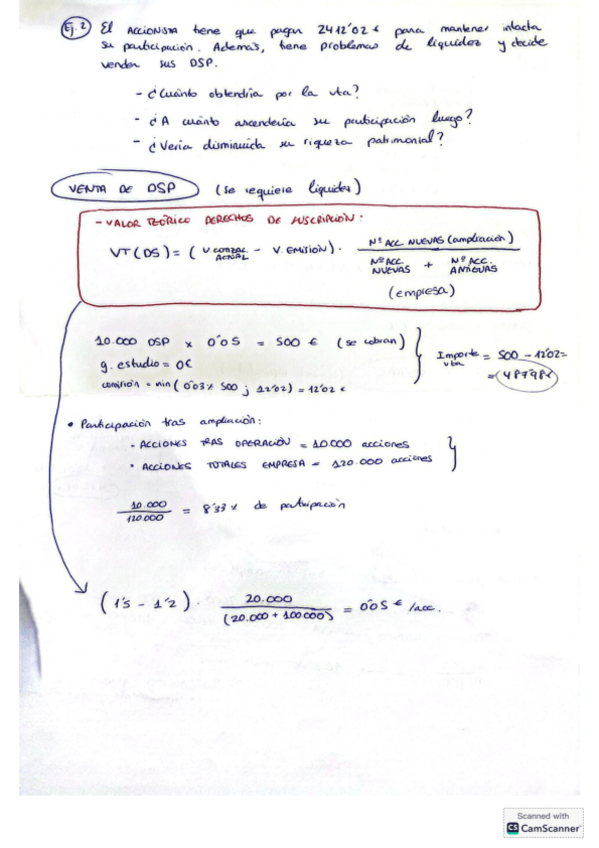 Ej. 2) El ACCIONISTA tiene que pagar 2412'02 € para mantener intacta
su participación. Además, tiene problemas de liquidez y decide
vender sus DSP.
- ¿Cuánto obtendría por la vta?
- ¿A cuánto ascendería su participación luego?
- ¿Vería disminuida su riqueza patrimonial?
VENTA DE DSP (se requiere liquidez)
- VALOR TEÓRICO DERECHOS DE SUSCRIPCIÓN:
VT (DS) = ( V COTIZAC. ACTUAL - V. EMISIÓN) · Nº ACC. NUEVAS (ampliación) / Nº ACC. NUEVAS + Nº ACC. ANTIGUAS
(empresa)
10.000 DSP x 0'05 = 500 € (se cobran)
g. estudio = 0€
comisión = min ( 0'03% 500 ; 12'02) = 12'02 €
Importe vta = 500 - 12'02 =
= 487'98 €
• Participación tras ampliación:
- ACCIONES TRAS OPERACIÓN = 10.000 acciones
• ACCIONES TOTALES EMPRESA = 120.000 acciones
10.000 / 120.000 = 8'33 % de participación
(1'5 - 1'2) · 20.000 / (20.000 + 100000) = 0'05 € /acc.
Scanned with
CS CamScanner